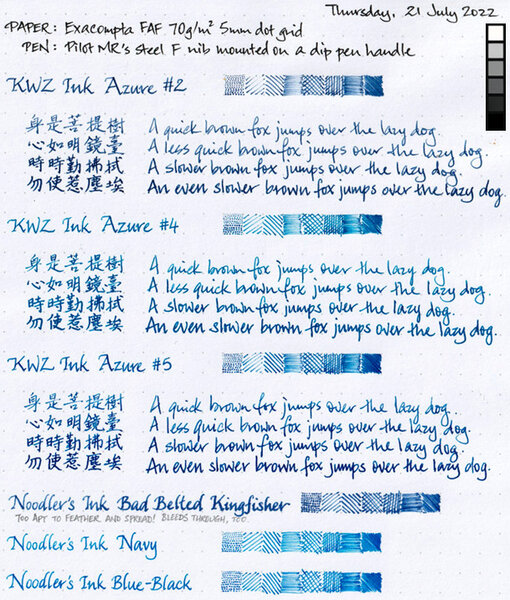 Thursday, 21 July 2022
PAPER: Exacompta FAF 70g/m² 5mm dot grid
PEN: Pilot MR's steel F nib mounted on a dip pen handle
KWZ Ink Azure #2
身是菩提樹 A quick brown fox jumps over the lazy dog.
心如明鏡臺 A less quick brown fox jumps over the lazy dog.
時時勤拂拭 A slower brown fox jumps over the lazy dog.
勿使惹塵埃 An even slower brown fox jumps over the lazy dog.
KWZ Ink Azure #4
身是菩提樹 A quick brown fox jumps over the lazy dog.
心如明鏡臺 A less quick brown fox jumps over the lazy dog.
時時勤拂拭 A slower brown fox jumps over the lazy dog.
勿使惹塵埃 An even slower brown fox jumps over the lazy dog.
KWZ Ink Azure #5
身是菩提樹 A quick brown fox jumps over the lazy dog.
心如明鏡臺 A less quick brown fox jumps over the lazy dog.
時時勤拂拭 A slower brown fox jumps over the lazy dog.
勿使惹塵埃 An even slower brown fox jumps over the lazy dog.
Noodler's Ink Bad Belted Kingfisher
TOO APT TO FEATHER AND SPREAD! BLEEDS THROUGH, TOO.
Noodler's Ink Navy
Noodler's Ink Blue-Black